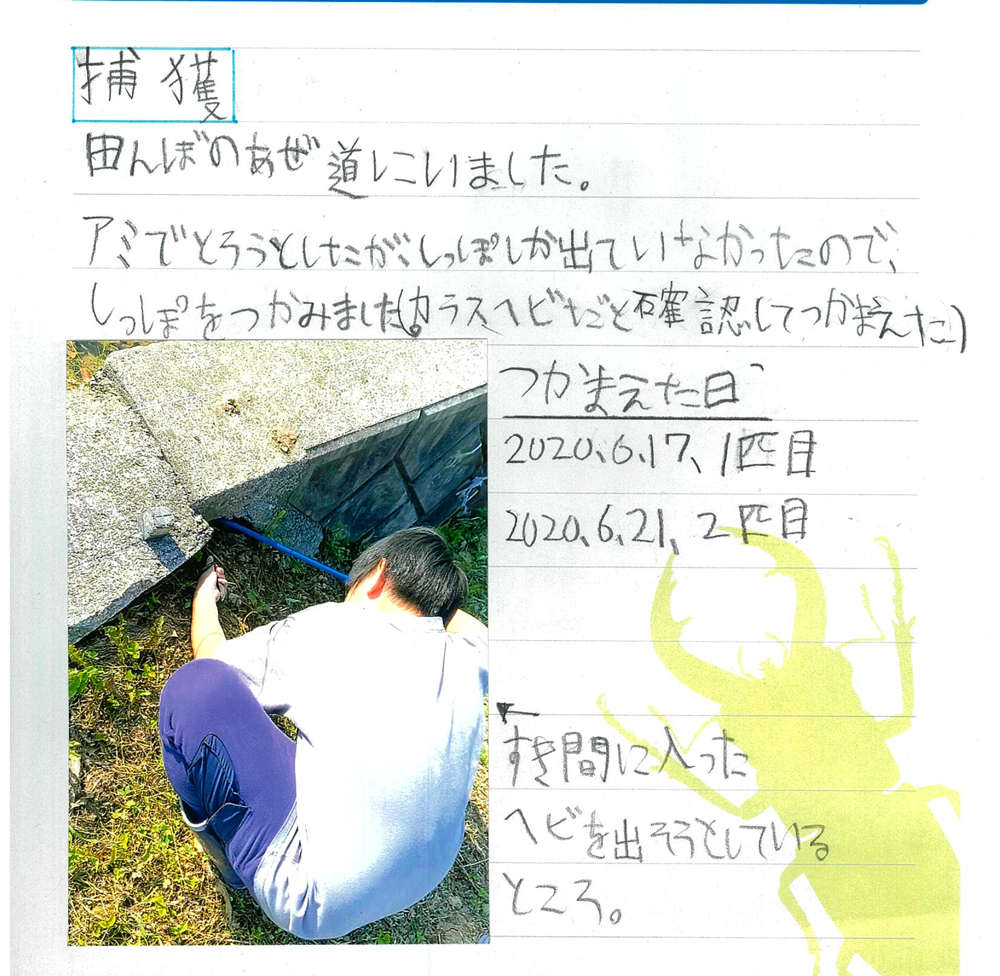 捕獲
田んぼのあぜ道にいました。
アミでとろうとしたが、しっぽしか出ていなかったので、
しっぽをつかみました。(カラスヘビだと確認してつかまえた)
つかまえた日
2020、6、17、1匹目
2020、6、21、2匹目
すき間に入った
ヘビを出そうとしている
ところ。